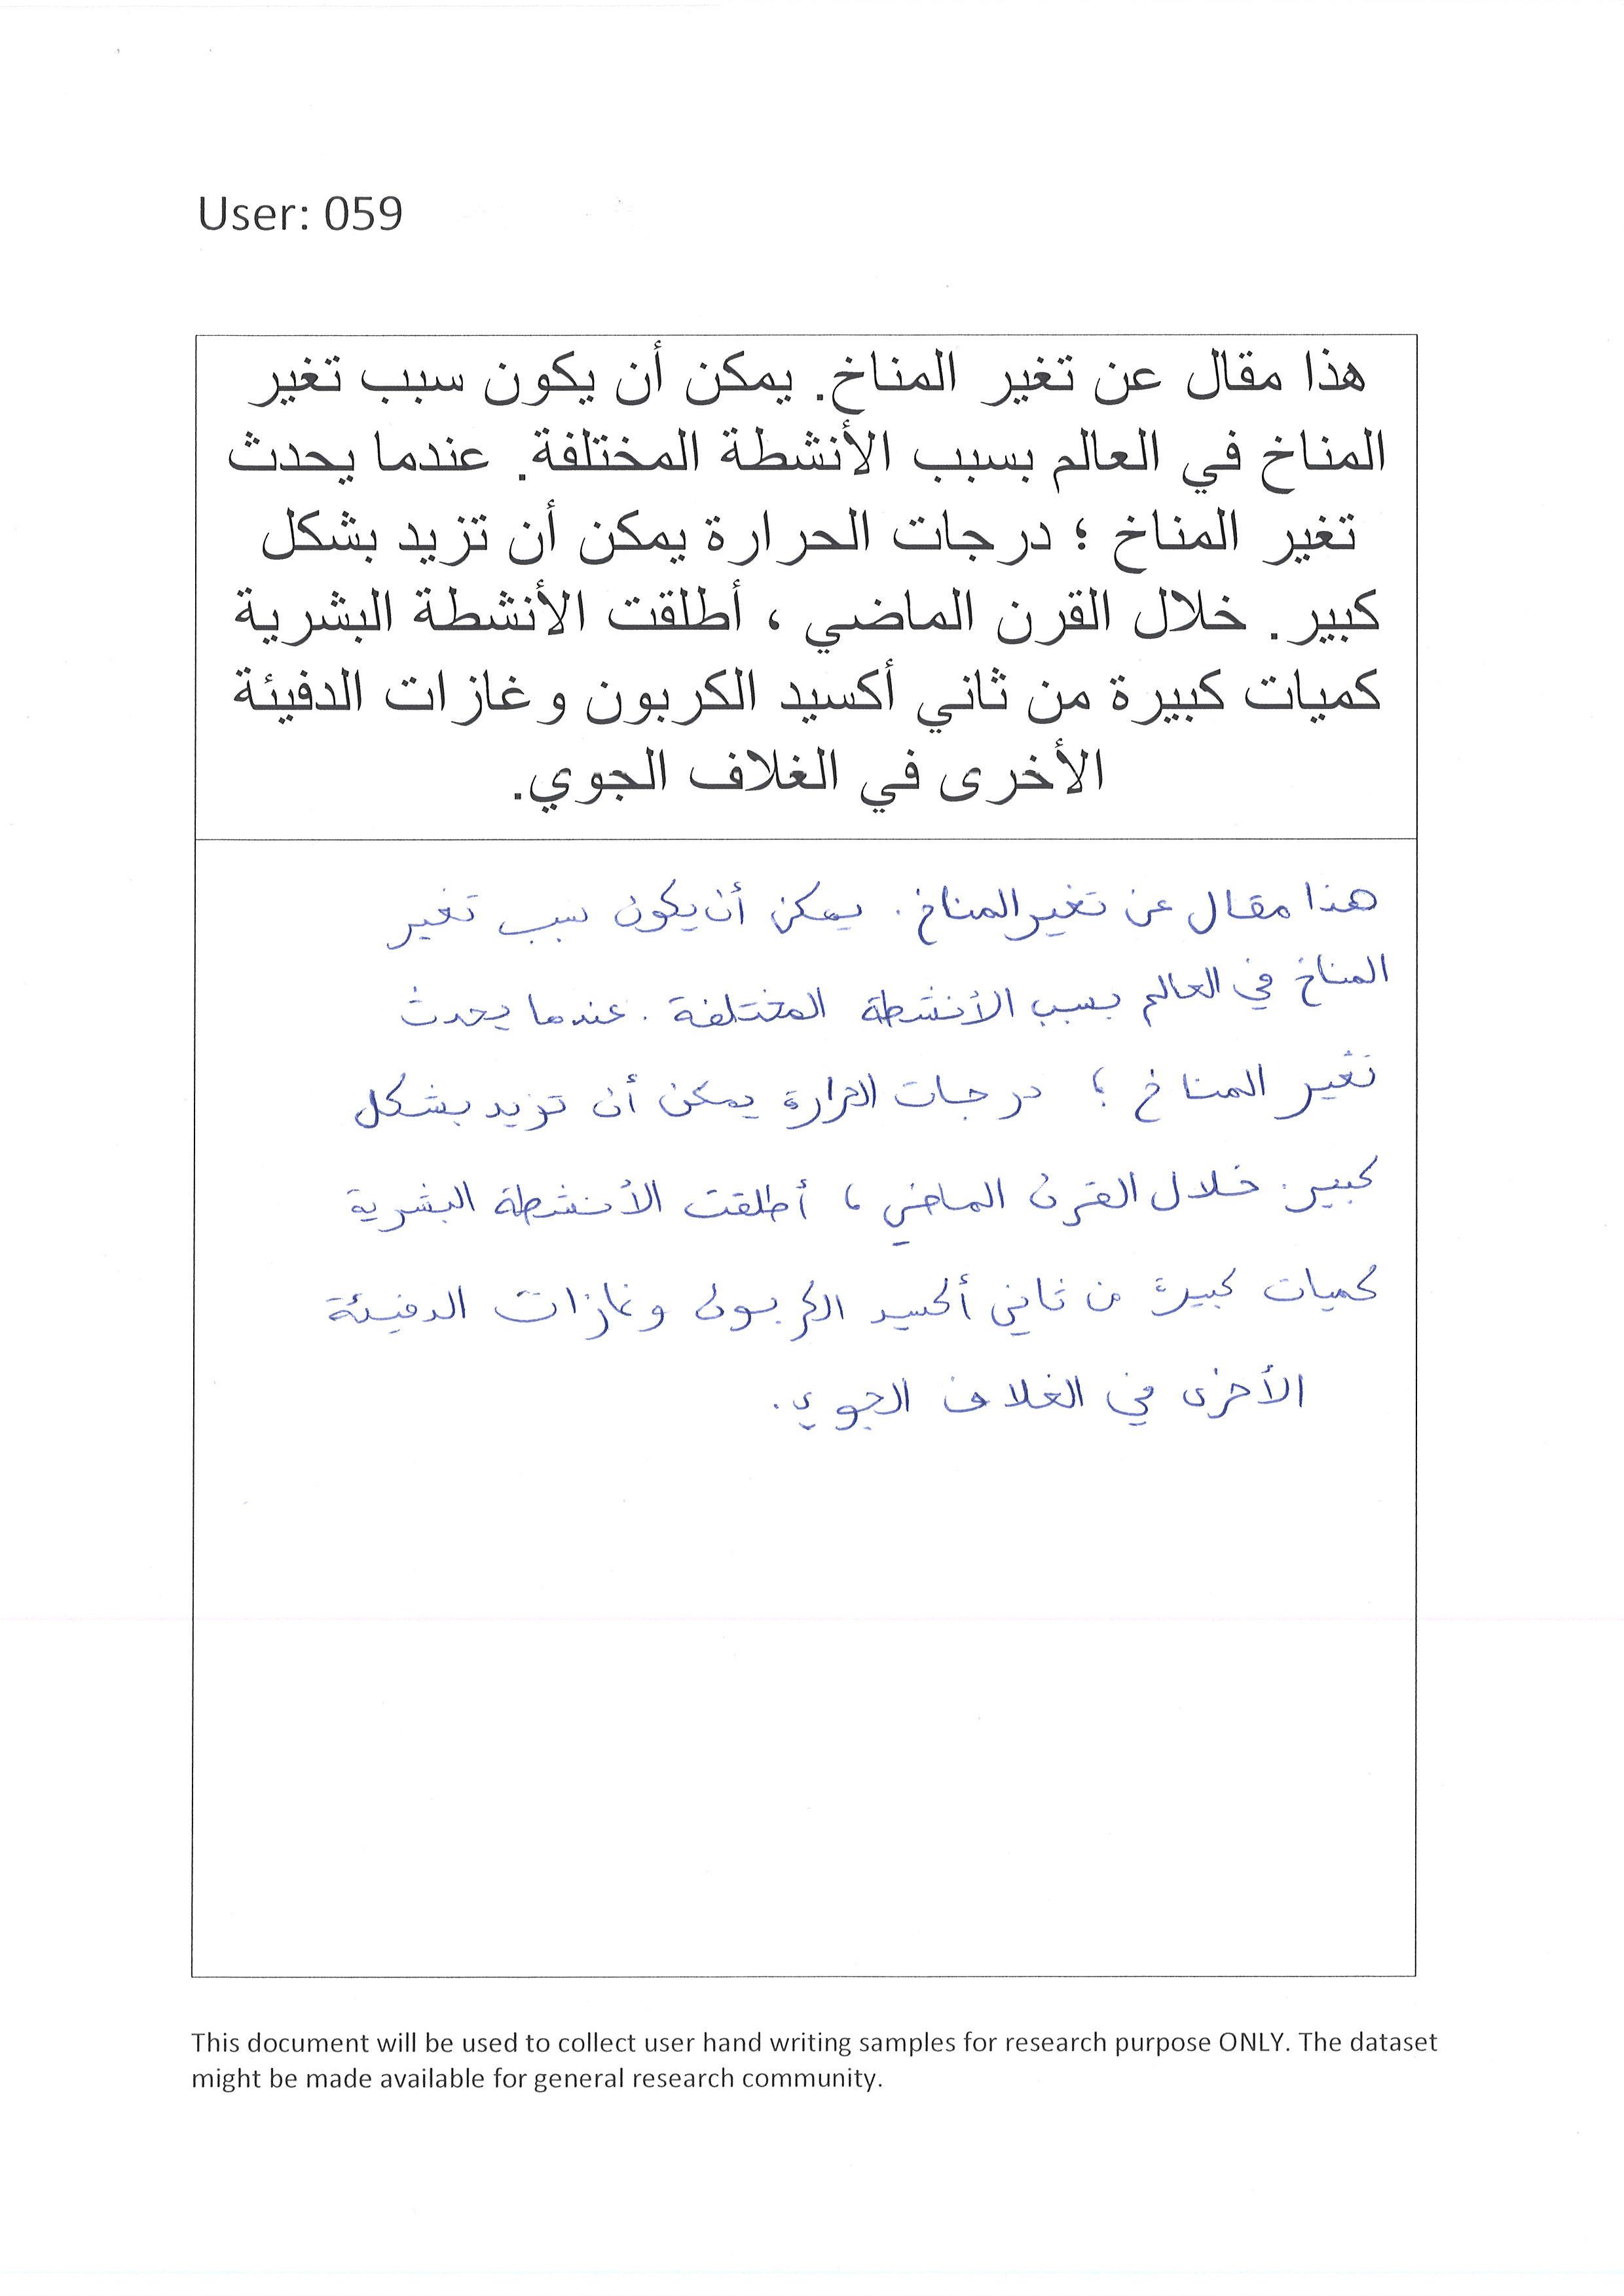 User: 059
هذا مقال عن تغير المناخ. يمكن أن يكون سبب تغير
المناخ في العالم بسبب الأنشطة المختلفة. عندما يحدث
تغير المناخ ؛ درجات الحرارة يمكن أن تزيد بشكل
كبير. خلال القرن الماضي ، أطلقت الأنشطة البشرية
كميات كبيرة من ثاني أكسيد الكربون وغازات الدفيئة
الأخرى في الغلاف الجوي.
هذا مقال عن تغير المناخ. يمكن أن يكون سبب تغير
المناخ في العالم بسبب الأنشطة المختلفة. عندما يحدث
تغير المناخ ؛ درجات الحرارة يمكن أن تزيد بشكل
كبير. خلال القرن الماضي ، أطلقت الأنشطة البشرية
كميات كبيرة من ثاني أكسيد الكربون وغازات الدفيئة
الأخرى في الغلاف الجوي.
This document will be used to collect user hand writing samples for research purpose ONLY. The dataset
might be made available for general research community.